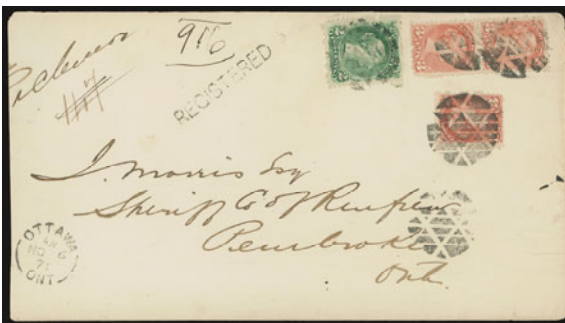 REGISTERED
J. Morris Esq
Sheriff Co of Renfrew
Pembroke
Ont.
OTTAWA
NO 6
71
ONT